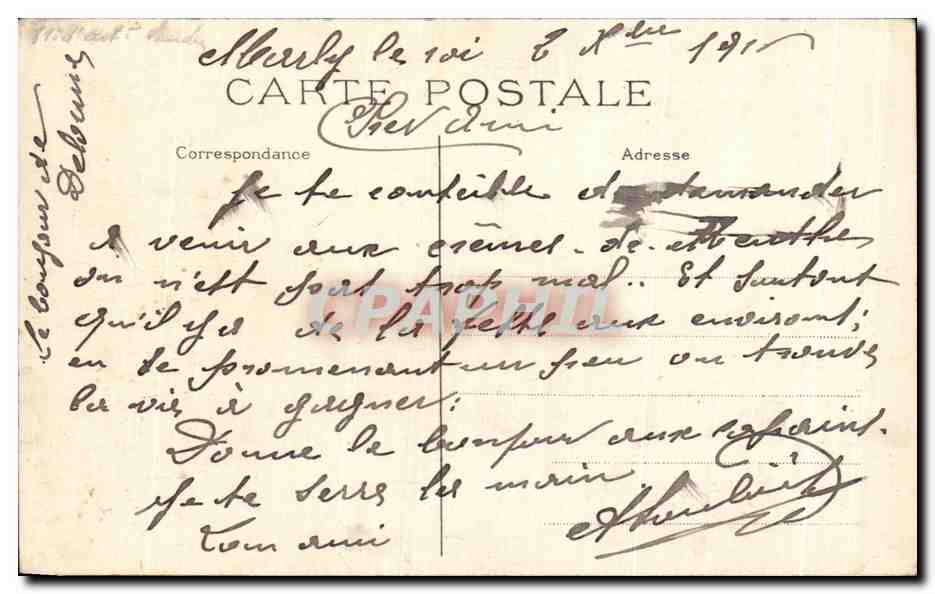 Marly le roi 2 Xbre 191
CARTE POSTALE
Cher Ami
Correspondance
Adresse
Je te conseille de demander
à venir aux crêmes-de-Menthes
on n'est pas trop mal.. Et surtout
qu'il y a de la fesse aux environs;
en se promenant un peu on trouve
la vie à gagner:
Donne le bonjour aux copains.
Je te serre la main.
Ton ami
Le bonjour de
CPAPHIL